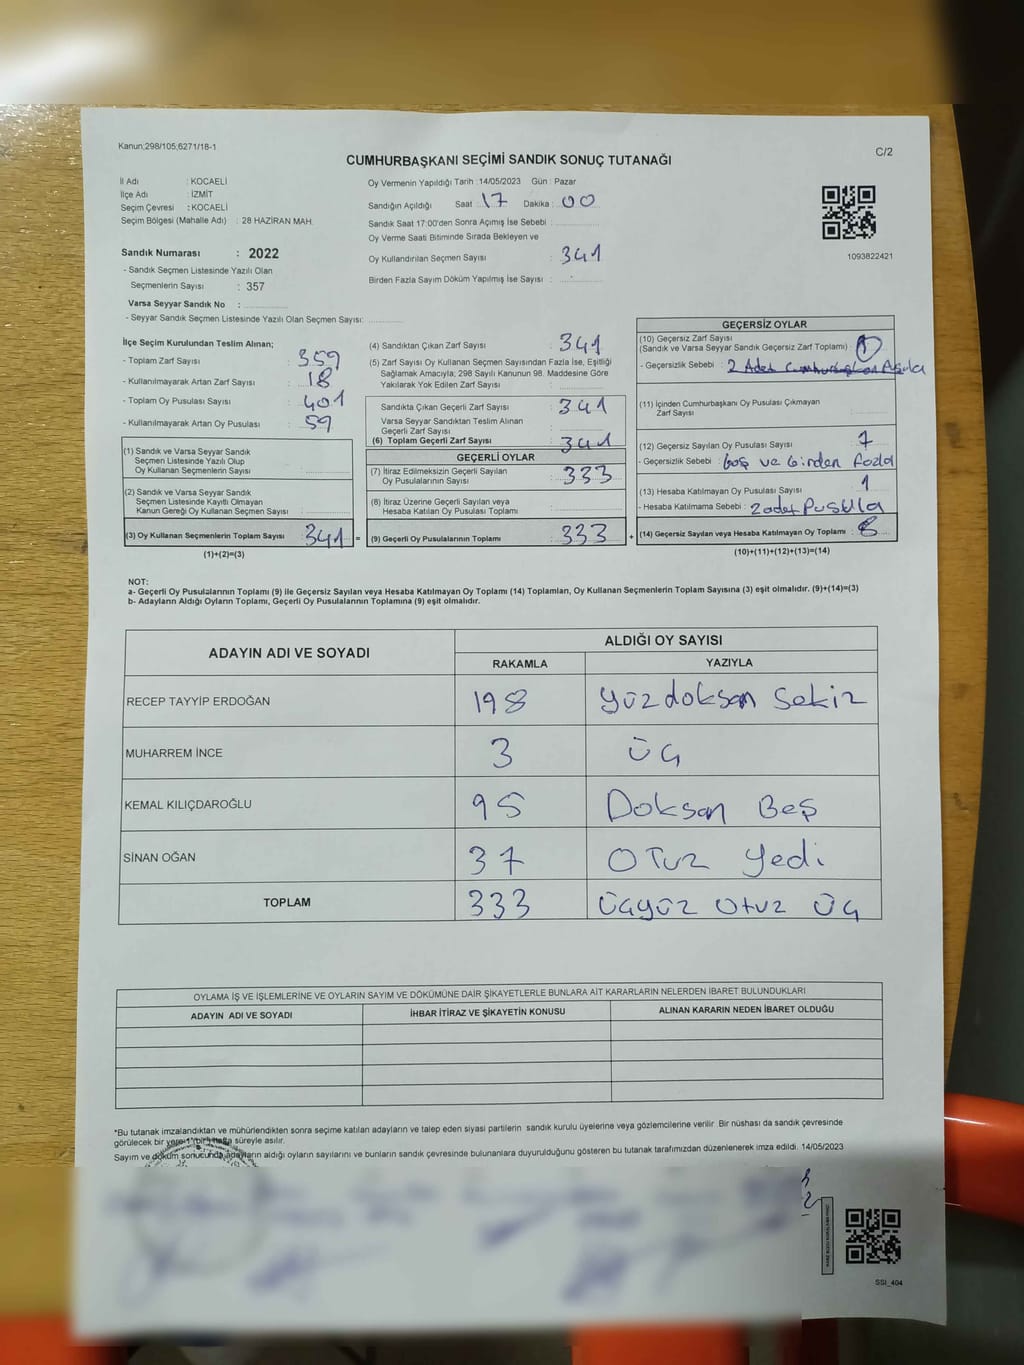 Kanun;298/105;6271/18-1
CUMHURBAŞKANI SEÇİMİ SANDIK SONUÇ TUTANAĞI
C/2
İl Adı : KOCAELİ
İlçe Adı : İZMİT
Seçim Çevresi : KOCAELİ
Seçim Bölgesi (Mahalle Adı) : 28 HAZİRAN MAH.
Sandık Numarası : 2022
- Sandık Seçmen Listesinde Yazılı Olan
Seçmenlerin Sayısı : 357
Varsa Seyyar Sandık No :
- Seyyar Sandık Seçmen Listesinde Yazılı Olan Seçmen Sayısı:
Oy Vermenin Yapıldığı Tarih :14/05/2023 Gün : Pazar
Sandığın Açıldığı Saat : 17 Dakika : 00
Sandık Saat 17:00'den Sonra Açılmış İse Sebebi :
Oy Verme Saati Bitiminde Sırada Bekleyen ve
Oy Kullandırılan Seçmen Sayısı : 341
Birden Fazla Sayım Döküm Yapılmış İse Sayısı :
1093822421
İlçe Seçim Kurulundan Teslim Alınan;
- Toplam Zarf Sayısı : 359
- Kullanılmayarak Artan Zarf Sayısı : 18
- Toplam Oy Pusulası Sayısı : 401
- Kullanılmayarak Artan Oy Pusulası : 59
(1) Sandık ve Varsa Seyyar Sandık
Seçmen Listesinde Yazılı Olup
Oy Kullanan Seçmenlerin Sayısı :
(2) Sandık ve Varsa Seyyar Sandık
Seçmen Listesinde Kayıtlı Olmayan
Kanun Gereği Oy Kullanan Seçmen Sayısı :
(3) Oy Kullanan Seçmenlerin Toplam Sayısı : 341 =
(1)+(2)=(3)
(4) Sandıktan Çıkan Zarf Sayısı : 341
(5) Zarf Sayısı Oy Kullanan Seçmen Sayısından Fazla İse, Eşitliği
Sağlamak Amacıyla; 298 Sayılı Kanunun 98. Maddesine Göre
Yakılarak Yok Edilen Zarf Sayısı :
Sandıkta Çıkan Geçerli Zarf Sayısı : 341
Varsa Seyyar Sandıktan Teslim Alınan
Geçerli Zarf Sayısı :
(6) Toplam Geçerli Zarf Sayısı : 341
GEÇERLİ OYLAR
(7) İtiraz Edilmeksizin Geçerli Sayılan
Oy Pusulalarının Sayısı : 333
(8) İtiraz Üzerine Geçerli Sayılan veya
Hesaba Katılan Oy Pusulası Toplamı :
(9) Geçerli Oy Pusulalarının Toplamı : 333 +
GEÇERSİZ OYLAR
(10) Geçersiz Zarf Sayısı
(Sandık ve Varsa Seyyar Sandık Geçersiz Zarf Toplamı) :
- Geçersizlik Sebebi : 2 Adet Cumhurbaşkan Pusula
(11) İçinden Cumhurbaşkanı Oy Pusulası Çıkmayan
Zarf Sayısı :
(12) Geçersiz Sayılan Oy Pusulası Sayısı : 7
- Geçersizlik Sebebi : boş ve birden fazla
(13) Hesaba Katılmayan Oy Pusulası Sayısı : 1
- Hesaba Katılmama Sebebi : 2 adet Pusula
(14) Geçersiz Sayılan veya Hesaba Katılmayan Oy Toplamı : 8
(10)+(11)+(12)+(13)=(14)
NOT:
a- Geçerli Oy Pusulalarının Toplamı (9) ile Geçersiz Sayılan veya Hesaba Katılmayan Oy Toplamı (14) Toplamları, Oy Kullanan Seçmenlerin Toplam Sayısına (3) eşit olmalıdır. (9)+(14)=(3)
b- Adayların Aldığı Oyların Toplamı, Geçerli Oy Pusulalarının Toplamına (9) eşit olmalıdır.
ADAYIN ADI VE SOYADI ALDIĞI OY SAYISI
RAKAMLA YAZIYLA
RECEP TAYYİP ERDOĞAN 198 Yüzdoksan Sekiz
MUHARREM İNCE 3 Üç
KEMAL KILIÇDAROĞLU 95 Doksan Beş
SİNAN OĞAN 37 Otuz Yedi
TOPLAM 333 Üçyüz Otuz Üç
OYLAMA İŞ VE İŞLEMLERİNE VE OYLARIN SAYIM VE DÖKÜMÜNE DAİR ŞİKAYETLERLE BUNLARA AİT KARARLARIN NELERDEN İBARET BULUNDUKLARI
ADAYIN ADI VE SOYADI İHBAR İTİRAZ VE ŞİKAYETİN KONUSU ALINAN KARARIN NEDEN İBARET OLDUĞU
*Bu tutanak imzalandıktan ve mühürlendikten sonra seçime katılan adayların ve talep eden siyasi partilerin sandık kurulu üyelerine veya gözlemcilerine verilir. Bir nüshası da sandık çevresinde
görülecek bir yere 1 (bir) hafta süreyle asılır.
Sayım ve döküm sonucunda adayların aldığı oyların sayılarını ve bunların sandık çevresinde bulunanlara duyurulduğunu gösteren bu tutanak tarafımızdan düzenlenerek imza edildi. 14/05/2023
SSI_404